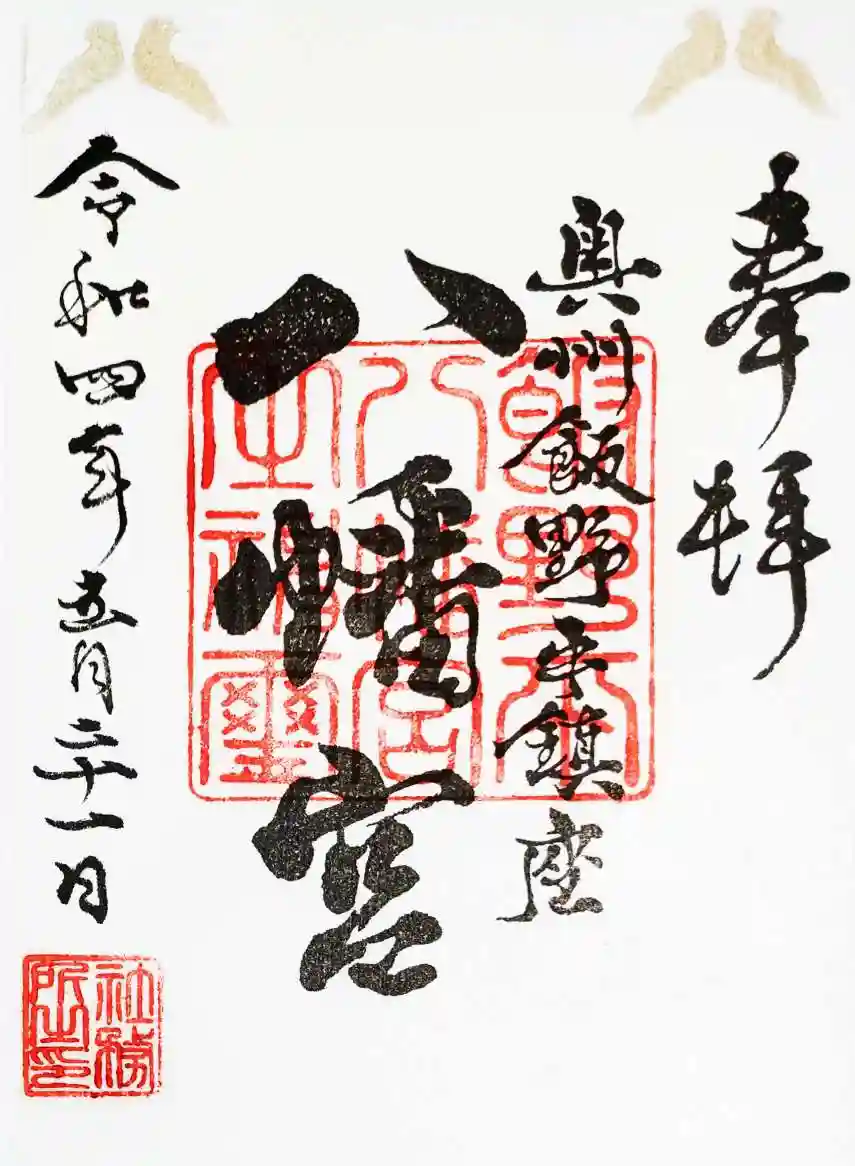 奉拝
奥州飯野平鎮座
八幡宮
令和四年五月二十一日
飯野平
八幡宮
之神璽
社務
所之印